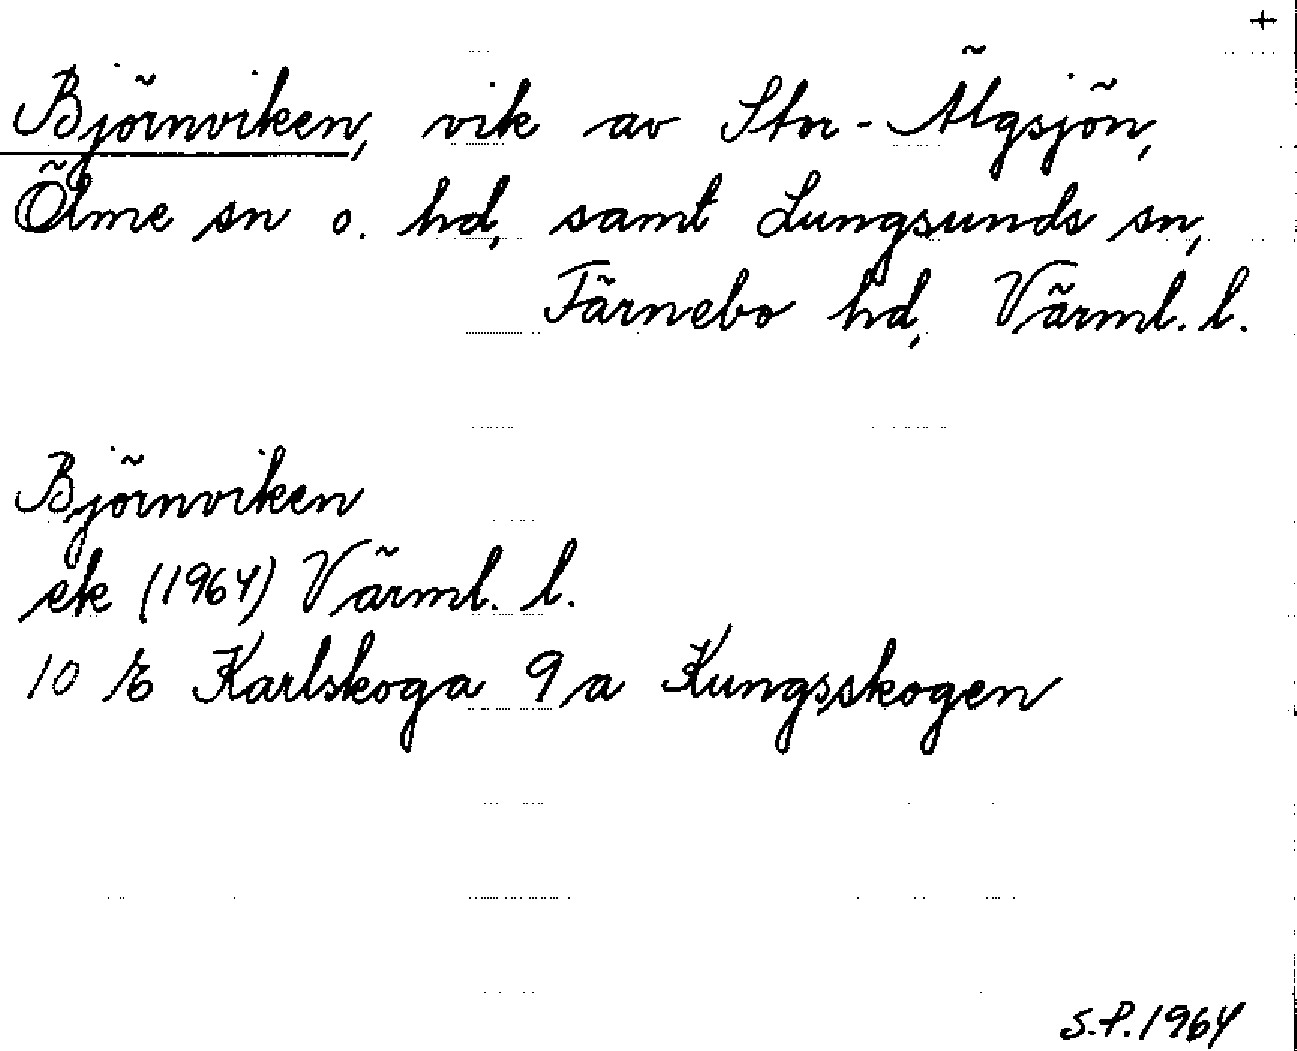 +
Björnviken, vik av Stor-Älgsjön,
Ölme sn o. hd, samt Lungsunds sn,
Färnebo hd, Värml. l.
Björnviken
ek (1964) Värml. l.
10 E Karlskoga 9 a Kungsskogen
S.P. 1964